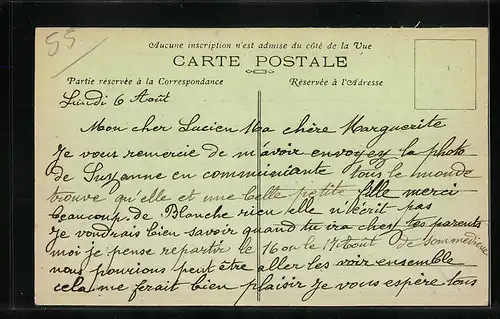 55
Aucune inscription n'est admise du côté de la Vue
CARTE POSTALE
Partie réservée à la Correspondance
Réservée à l'Adresse
Lundi 6 Août
Mon cher Lucien Ma chère Marguerite
Je vous remercie de m'avoir envoyez la photo
de Suzanne en communiante tous le monde
trouve qu'elle et une belle petite fille merci
beaucoup. de Blanche rien elle n'écrit pas
Je voudrais bien savoir quand tu ira chez tes parents
moi je pense repartir le 16 ou le 17 Août de Sommedieue
nous pourions peut être aller les voir ensemble
cela me ferait bien plaisir Je vous espère tous